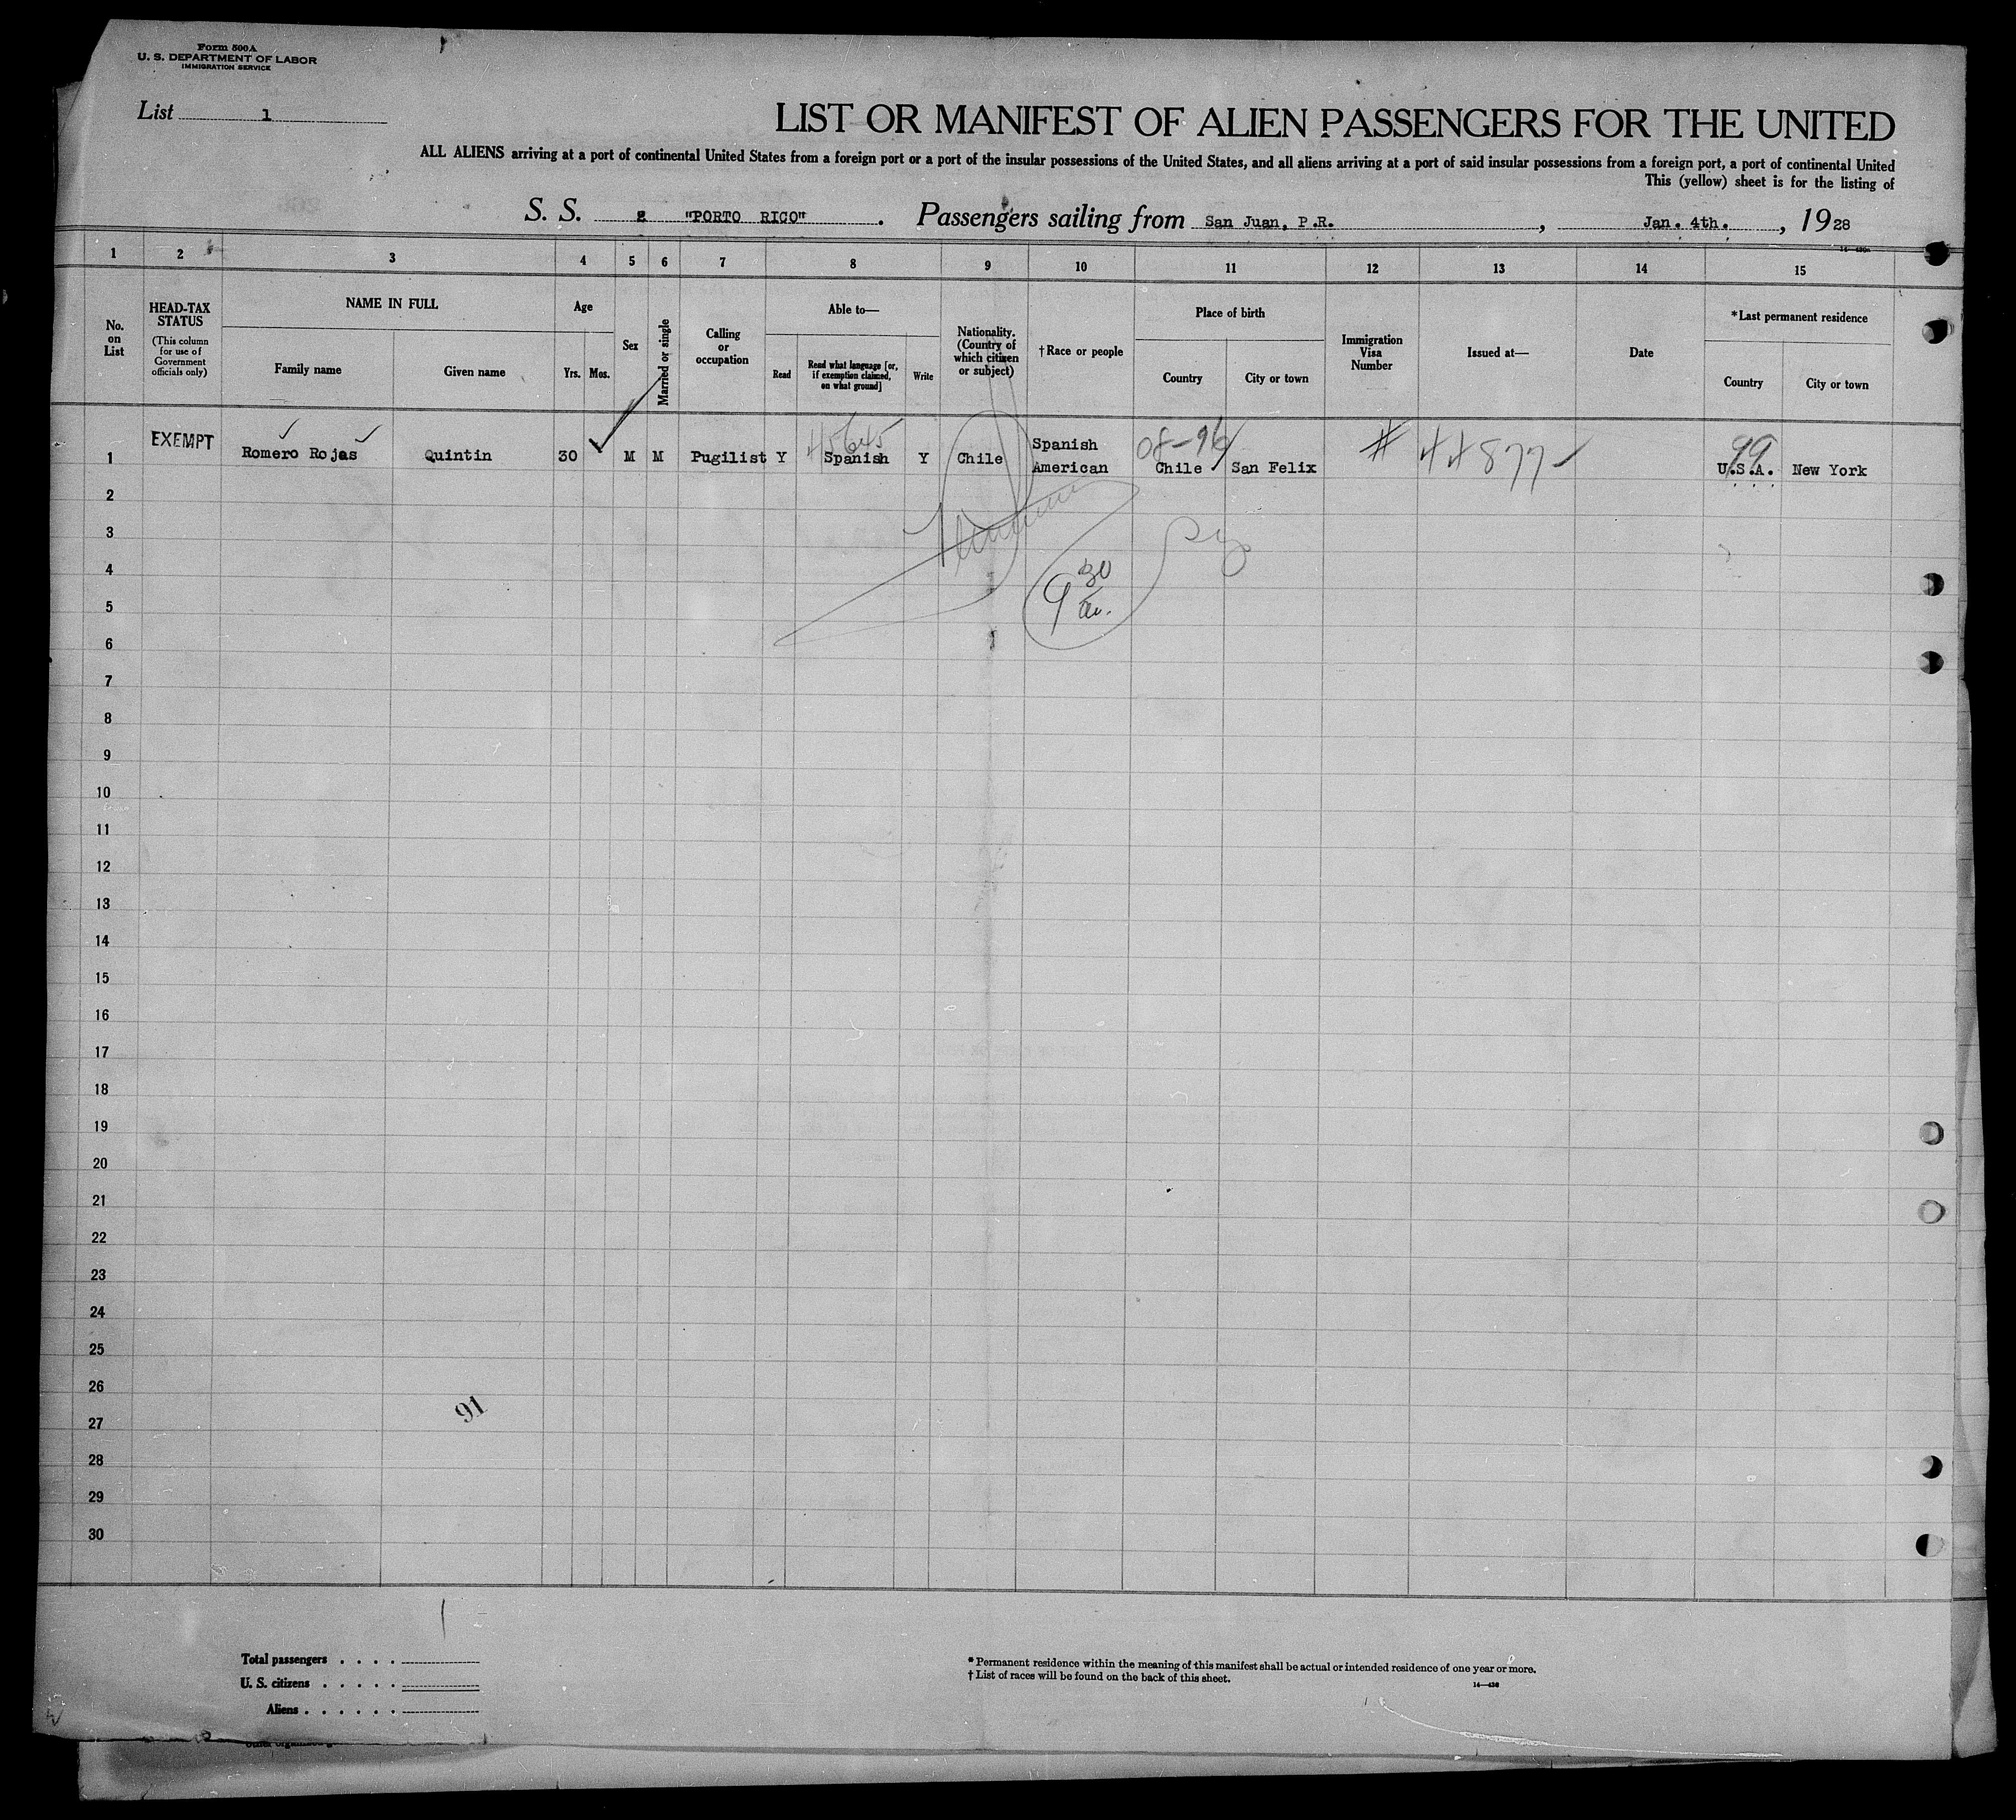 Form 500A
U. S. DEPARTMENT OF LABOR
IMMIGRATION SERVICE
List 1
LIST OR MANIFEST OF ALIEN PASSENGERS FOR THE UNITED
ALL ALIENS arriving at a port of continental United States from a foreign port or a port of the insular possessions of the United States, and all aliens arriving at a port of said insular possessions from a foreign port, a port of continental United
This (yellow) sheet is for the listing of
S. S. "PORTO RICO" . Passengers sailing from San Juan, P.R. , Jan. 4th. , 1928
1 2 3 4 5 6 7 8 9 10 11 12 13 14 15
No. on List
HEAD-TAX STATUS
(This column for use of Government officials only)
NAME IN FULL
Family name
Given name
Age
Yrs.
Mos.
Sex
Married or single
Calling or occupation
Able to—
Read
Read what language [or, if exemption claimed, on what ground]
Write
Nationality. (Country of which citizen or subject)
†Race or people
Place of birth
Country
City or town
Immigration Visa Number
Issued at—
Date
*Last permanent residence
Country
City or town
1 EXEMPT Romero Rojas Quintin 30 M M Pugilist Y Spanish Y Chile Spanish American Chile San Felix # 44877 U.S.A. New York
45645
08-96
99
2
3
4
9 30
5
6
7
8
9
10
11
12
13
14
15
16
17
18
19
20
21
22
23
24
25
26
91
27
28
29
30
Total passengers . . . .
U. S. citizens . . . . .
Aliens . . . . . .
* Permanent residence within the meaning of this manifest shall be actual or intended residence of one year or more.
† List of races will be found on the back of this sheet.
14—430